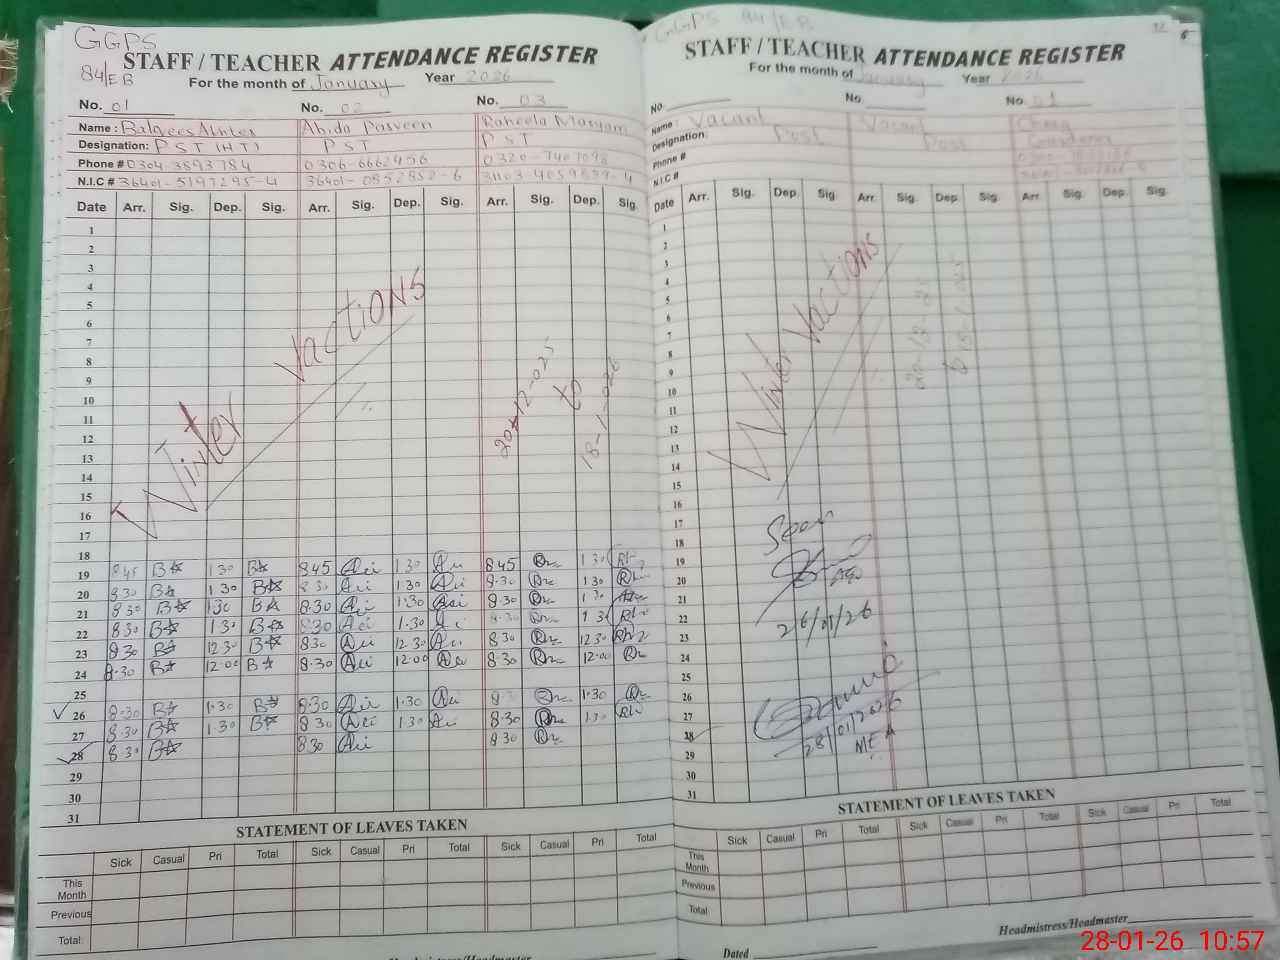 GGPS
84/EB
STAFF / TEACHER ATTENDANCE REGISTER
For the month of January Year 2026
No. 01 No. 02 No. 03
Name: Balqees Akhter Abida Parveen Raheela Maryam
Designation: PST (HT) PST PST
Phone # 0304-3593784 0306-6662456
N.I.C # 36401-5197295-4
Date Arr. Sig. Dep. Sig. Arr. Sig. Dep. Sig. Arr. Sig. Dep. Sig.
1
2
3
4
5
6
7
8
9
10
11
12
13
14
15
16
17
Winter Vactions
20-12-025
to
18-1-026
18
19 8:45 1:30 8:45 1:30 8:45 1:30
20 8:30 1:30 8:30 1:30 8:30 1:30
21 8:30 1:30 8:30 1:30 8:30 1:30
22 8:30 1:30 8:30 1:30 8:30 1:3
23 8:30 12:30 8:30 12:30 8:30 12:30
24 8:30 12:00 8:30 12:00 8:30 12:00
25
26 8:30 1:30 8:30 1:30 8 1:30
27 8:30 1:30 8:30 1:30 8:30 1:30
28 8:30 8:30 8:30
29
30
31
STATEMENT OF LEAVES TAKEN
Sick Casual Pri Total Sick Casual Pri Total Sick Casual Pri Total
This Month
Previous
Total
Headmistress/Headmaster
GGPS 84/EB
STAFF / TEACHER ATTENDANCE REGISTER
For the month of January Year 2026
No. No. No. 01
Name: Vacant Vacant
Designation: Post Post
Phone #
N.I.C #
Date Arr. Sig. Dep. Sig. Arr. Sig. Dep. Sig. Arr. Sig. Dep. Sig.
1
2
3
4
5
6
7
8
9
10
11
12
13
14
15
16
17
18
19
20
21
22
23
24
25
26
27
28
29
30
31
Winter Vactions
Seen
AEO
26/01/26
28/01/2026
MEA
STATEMENT OF LEAVES TAKEN
Sick Casual Pri Total Sick Casual Pri Total Sick Casual Pri Total
This Month
Previous
Total
Headmistress/Headmaster
Dated
28-01-26 10:57